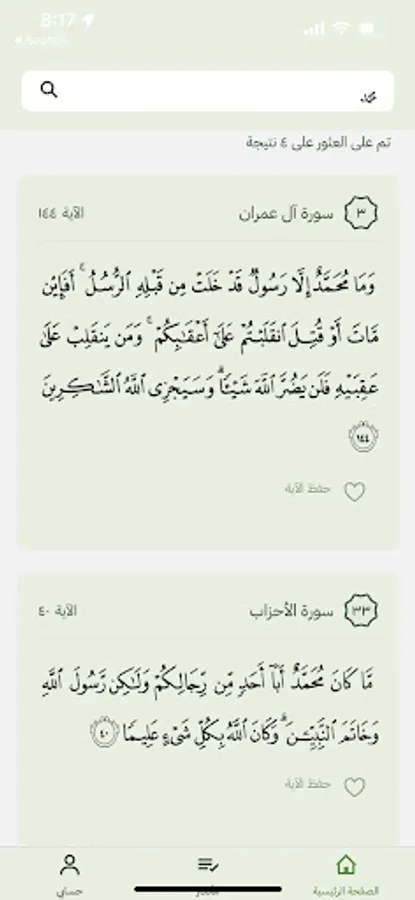 8:17
محمد
تم على العثور على ٤ نتيجة
٣ سورة آل عمران الآية ١٤٤
وَمَا مُحَمَّدٌ إِلَّا رَسُولٌ قَدْ خَلَتْ مِن قَبْلِهِ ٱلرُّسُلُ ۚ أَفَإِي۟ن
مَّاتَ أَوْ قُتِلَ ٱنقَلَبْتُمْ عَلَىٰٓ أَعْقَـٰبِكُمْ ۚ وَمَن يَنقَلِبْ عَلَىٰ
عَقِبَيْهِ فَلَن يَضُرَّ ٱللَّهَ شَيْـًٔا ۗ وَسَيَجْزِى ٱللَّهُ ٱلشَّـٰكِرِينَ
١٤٤
حفظ الآية
٣٣ سورة الأحزاب الآية ٤٠
مَّا كَانَ مُحَمَّدٌ أَبَآ أَحَدٍ مِّن رِّجَالِكُمْ وَلَـٰكِن رَّسُولَ ٱللَّهِ
وَخَاتَمَ ٱلنَّبِيِّـۧنَ ۗ وَكَانَ ٱللَّهُ بِكُلِّ شَىْءٍ عَلِيمًا ٤٠
حفظ الآية
الصفحة الرئيسية
حسابي